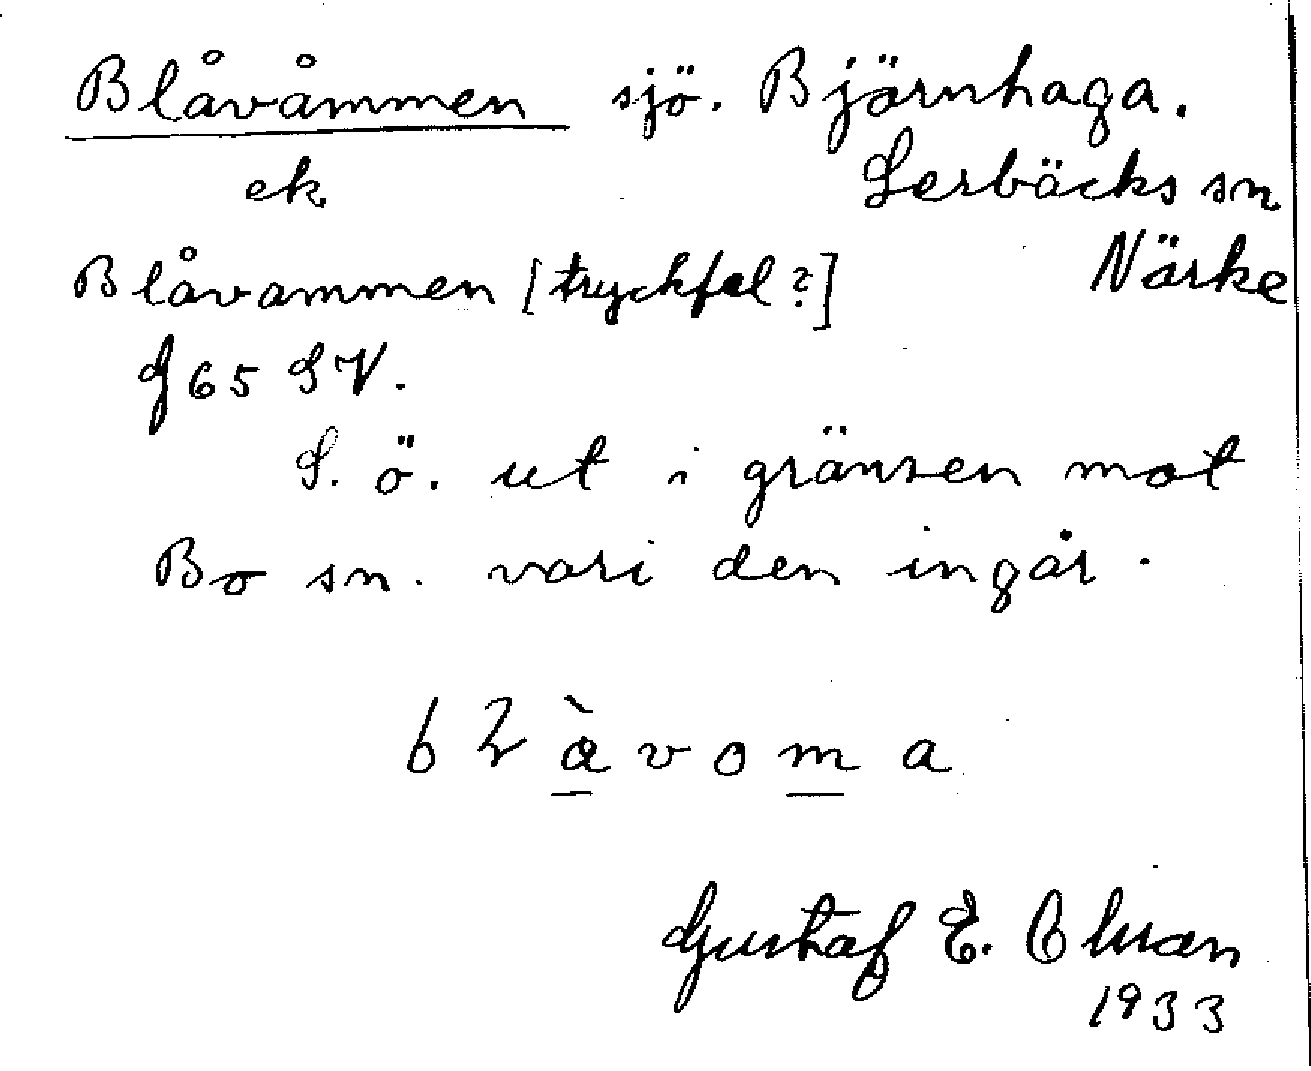 Blåvåmmen sjö. Björnhaga.
ek Lerbäcks sn
Blåvammen [tryckfel?] Närke
J 65 SV.
S. ö. ut i gränsen mot
Bo sn. vari den ingår.
b l à v o m a
Gustaf E. Olsson
1933